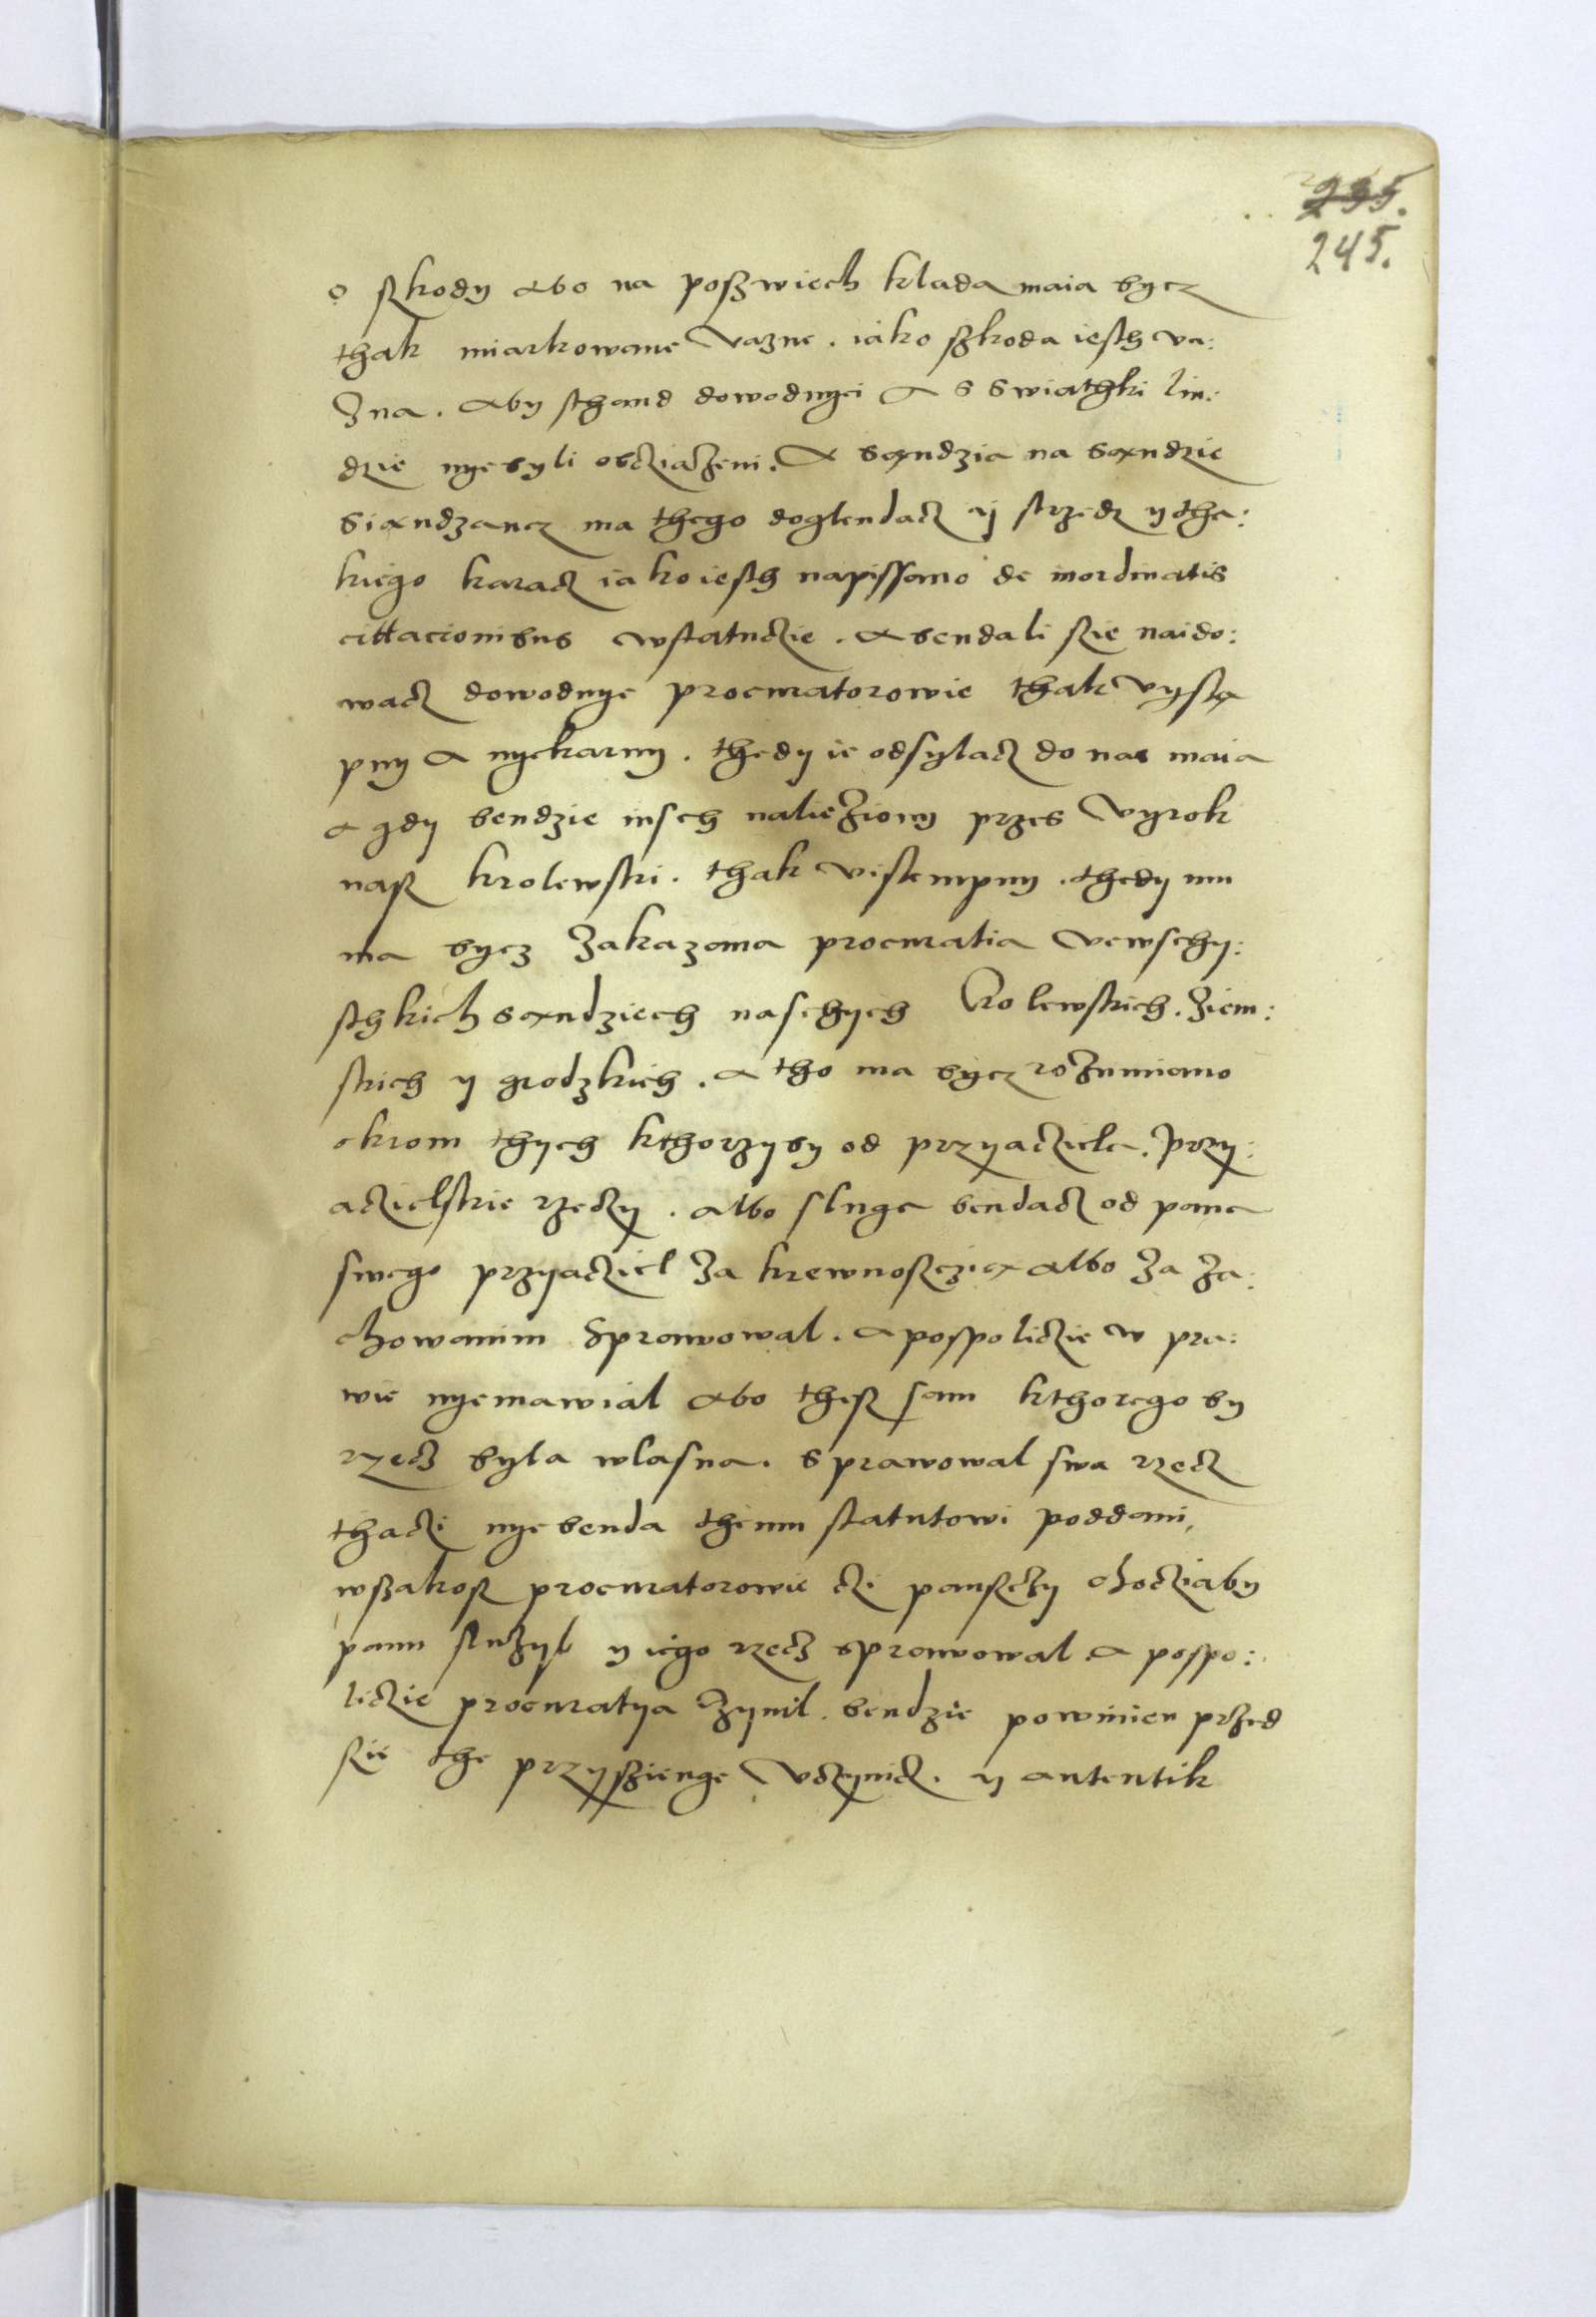 235.
245.
o skody abo na poszwiech klada maia bycz
thak miarkowane vazne. iako szkoda iesth va:
zna. aby sthand dowodnyei a s swiathki lu:
dzie nye byli obcziazeni. A sąndzia na sąndzie
siandzancz ma thego doglendacz aj strzedz y tha:
kiego karacz iako iesth napissano de inordinatis
cittacionibus w statuczie. a bendali sie naido:
wacz dowodnye procuratorowie thak vystą
pny a nyekarny. thedy ie odsylacz do nas maia
a gdy bendzie insch nalieziony przes vyrok
nasz krolewski. thak vistempny. thedy mu
ma bycz zakazana procuratia vewschy:
sthkich sąndziech naschych krolewskich. ziem:
skich y grodzkich. a tho ma bycz rozumiano
okrom thych kthorzy by od przyacziela. przy:
aczielskie rzeczy. albo sluga bendacz od pana
swego przyacziel za krewnoscią albo za za:
chowanim sprawowal. a pospoliczie w pra:
wie nyemawial abo thesz sam kthorego by
rzecz byla wlasna. sprawowal swa rzecz
thaczi nye benda themu statutowi poddani,
wszakosz procuratorowie czi panszczy chocziaby
panu sluzyl y iego rzecz sprawowal a pospo:
liczie procuratya czynil. bendzie powinien przed
sie the przyszienge vczynicz. y autentik